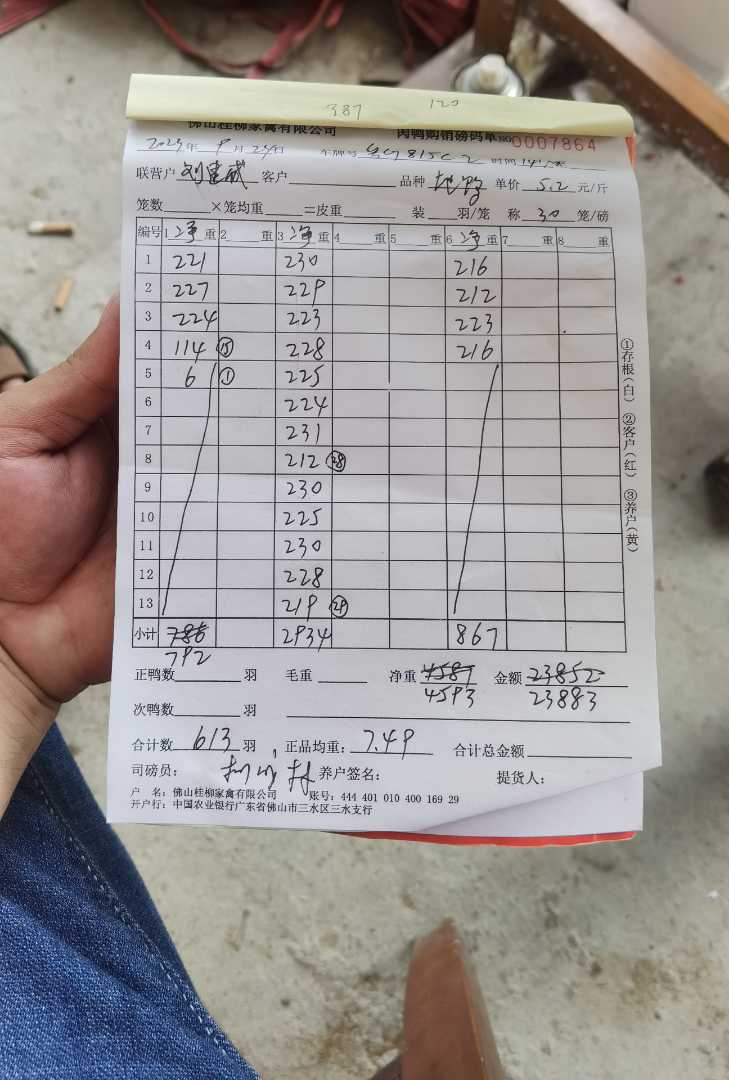 387 120
佛山桂柳家禽有限公司 肉鸭购销磅码单 NO 0007864
2023年 9月 23日 车牌号 时间
联营户 客户 品种 单价 5.2 元/斤
笼数 ×笼均重 =皮重 装 羽/笼 称 30 笼/磅
编号 1 净 重 2 重 3 净 重 4 重 5 重 6 净 重 7 重 8 重
1 221 230 216
2 227 229 212
3 224 223 223
4 114 ⑮ 228 216
5 6 ① 225
6 224
7 231
8 212 ㉘
9 230
10 225
11 230
12 228
13 219 ㉙
小计 786 2934 867
792
正鸭数 羽 毛重 净重 4587 金额 23852
4593 23883
次鸭数 羽
合计数 613 羽 正品均重: 7.49 合计总金额
司磅员: 养户签名: 提货人:
户 名: 佛山桂柳家禽有限公司 账号: 444 401 010 400 169 29
开户行: 中国农业银行广东省佛山市三水区三水支行
①存根(白) ②客户(红) ③养户(黄)